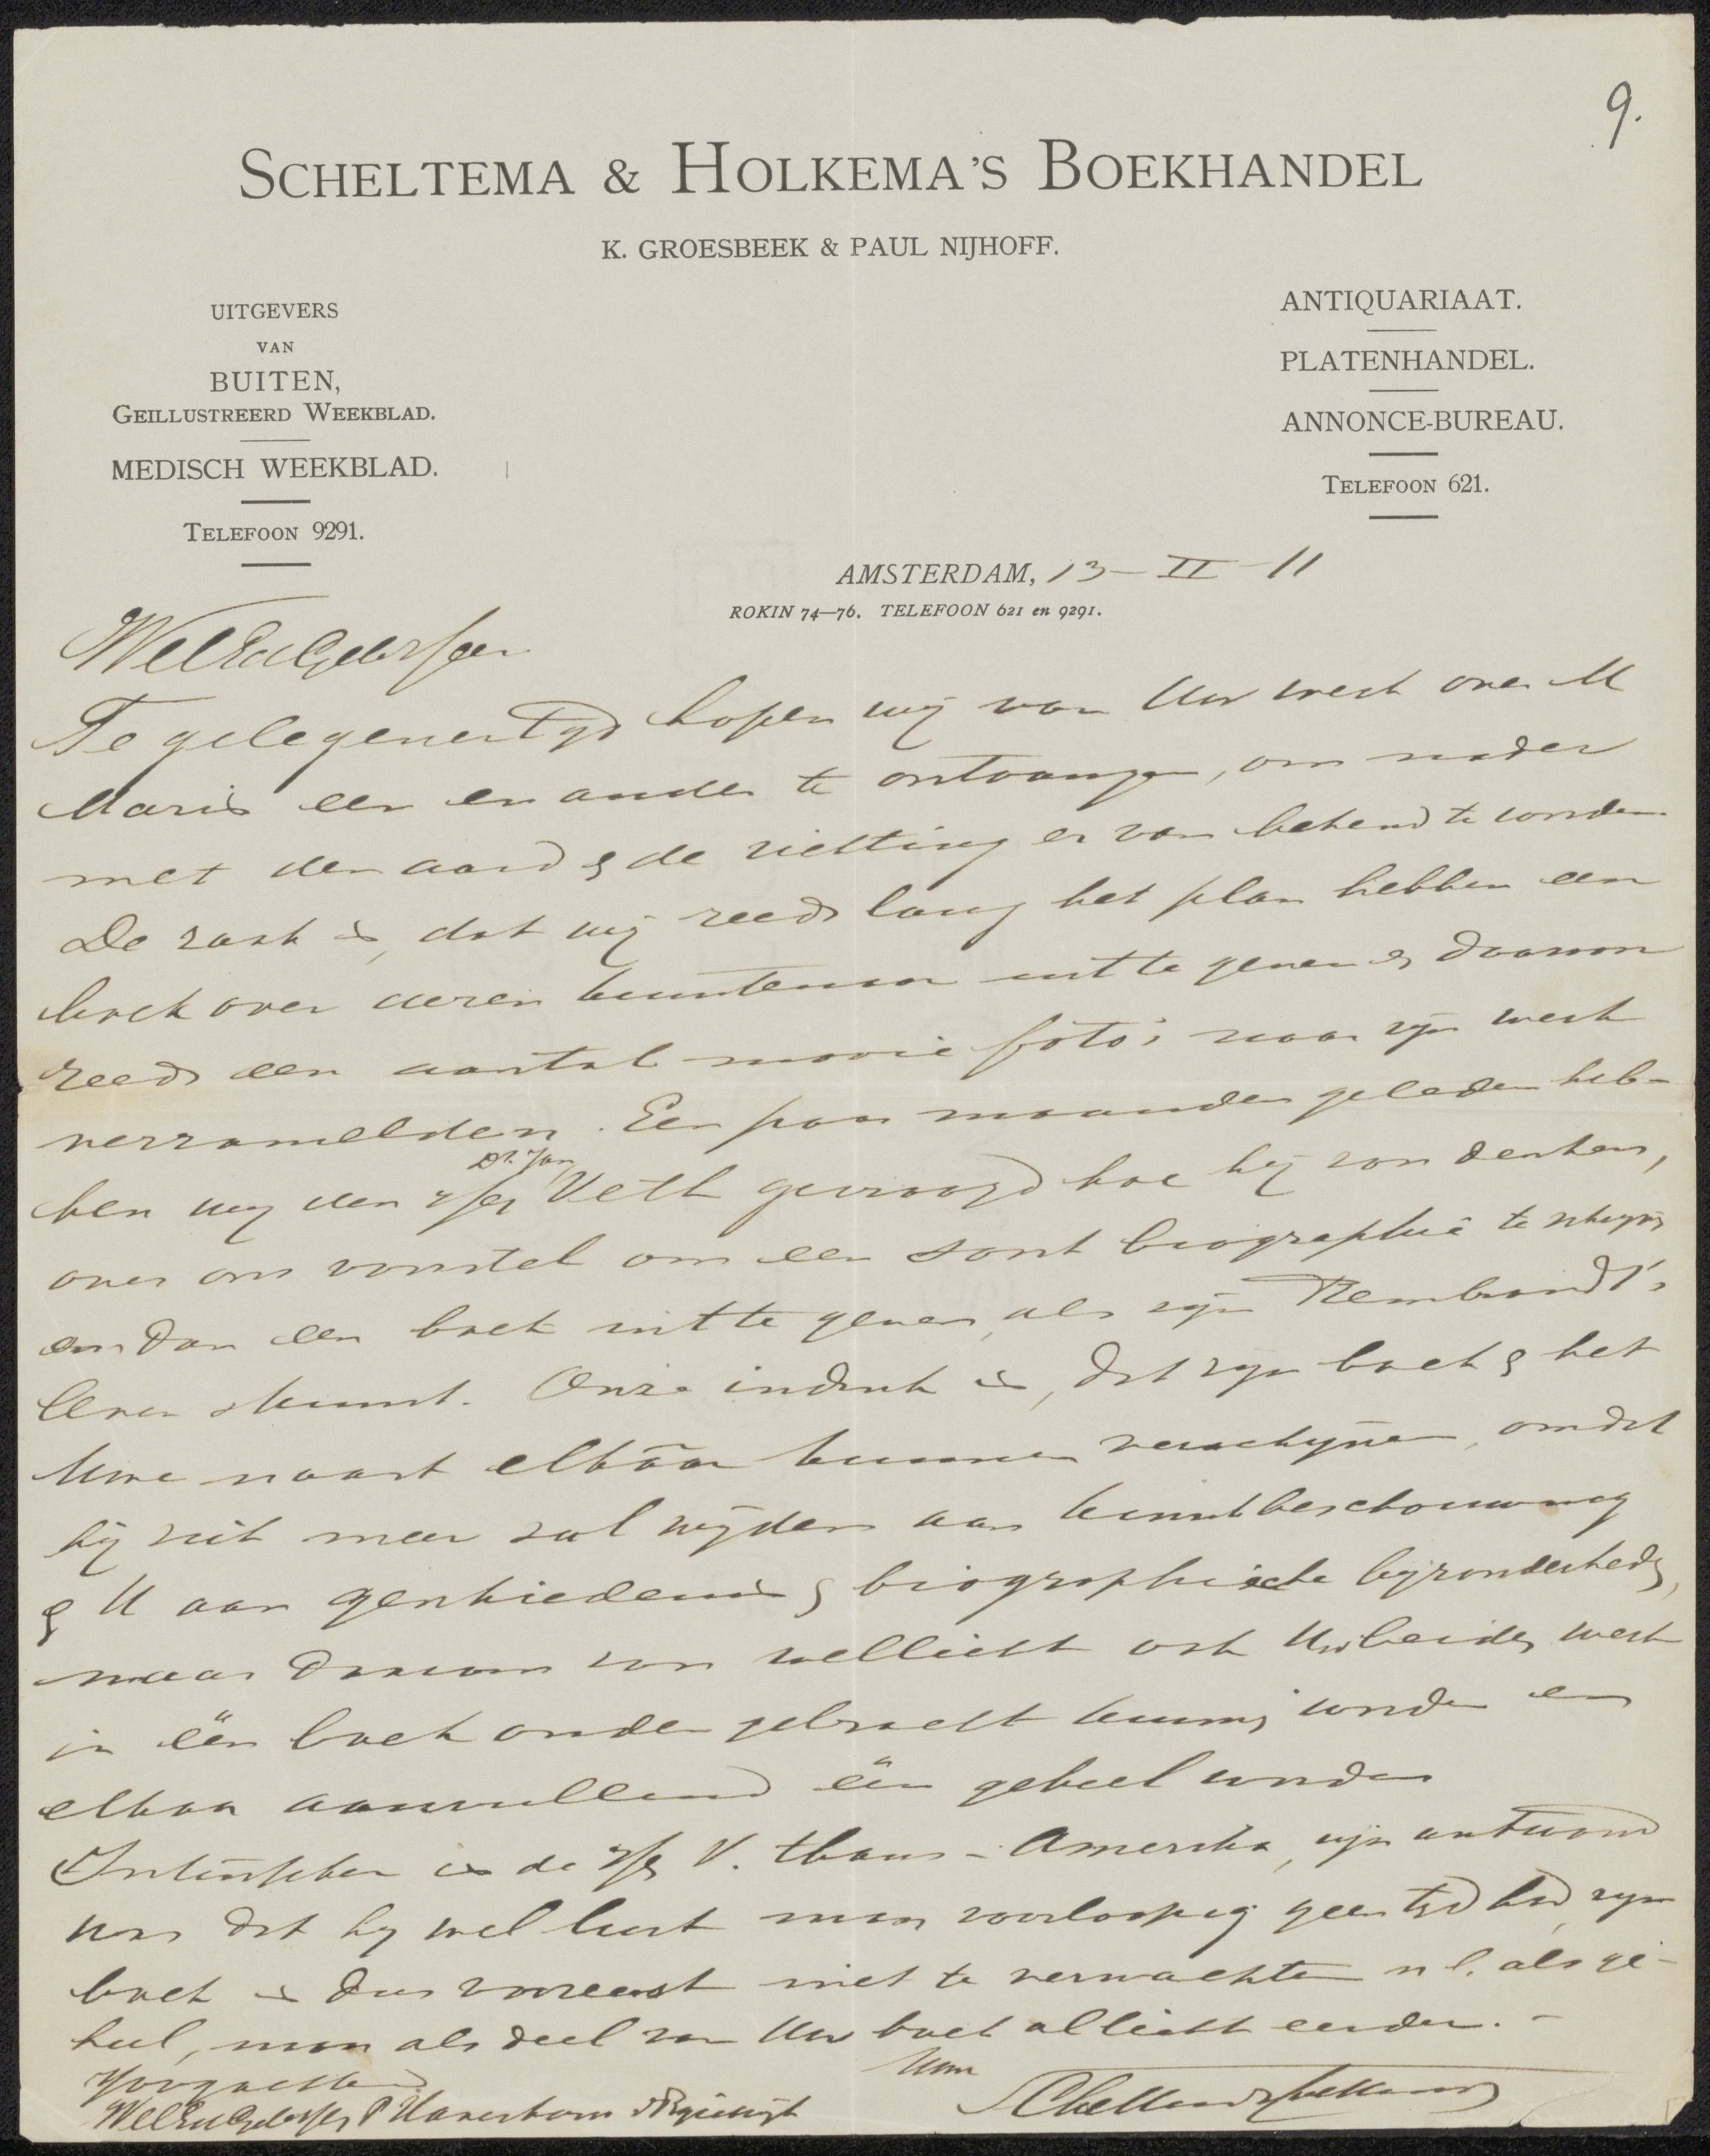 9.
SCHELTEMA & HOLKEMA'S BOEKHANDEL
K. GROESBEEK & PAUL NIJHOFF.
UITGEVERS
VAN
BUITEN,
GEILLUSTREERD WEEKBLAD.
MEDISCH WEEKBLAD.
TELEFOON 9291.
ANTIQUARIAAT.
PLATENHANDEL.
ANNONCE-BUREAU.
TELEFOON 621.
AMSTERDAM, 13-II-11
ROKIN 74—76. TELEFOON 621 en 9291.
WelEdelGeb Heer
Te gelegenertijd hopen wij van Uw werk over M
Maris een en ander te ontvangen, om nader
met den aard & de richting er van bekend te worden.
De zaak is, dat wij reeds lang het plan hebben een
boek over dezen kunstenaar uit te geven en daarvan
reeds een aantal mooie foto's naar zijn werk
verzamelden. Een paar maanden geleden heb-
ben wij den Heer Dr. Jan Veth gevraagd hoe hij zou denken,
over ons voorstel om een soort biographie te schrijven
om dan een boek uit te geven, als zijn Rembrandt's
leven & kunst. Onze indruk is, dat zijn boek & het
Uwe naast elkaar kunnen verschijnen, omdat
hij zich meer zal wijden aan kunstbeschouwing
& U aan geschiedenis & biographische bijzonderheden,
maar daarom zou wellicht ook Uw beider werk
in één boek onder gebracht kunnen worden en
elkaar aanvullend één geheel worden
Intusschen is de Heer V. thans in Amerika, zijn antwoord
was dat hij wel lust maar voorloopig geen tijd had, zijn
boek is dus vooreerst niet te verwachten nl. als ge-
heel, maar als deel van Uw boek allicht eerder. -
Hoogachtend
Uwe
Scheltema & Holkema
WelEdelGeb Heer P. Haverkorn v Rijsewijk